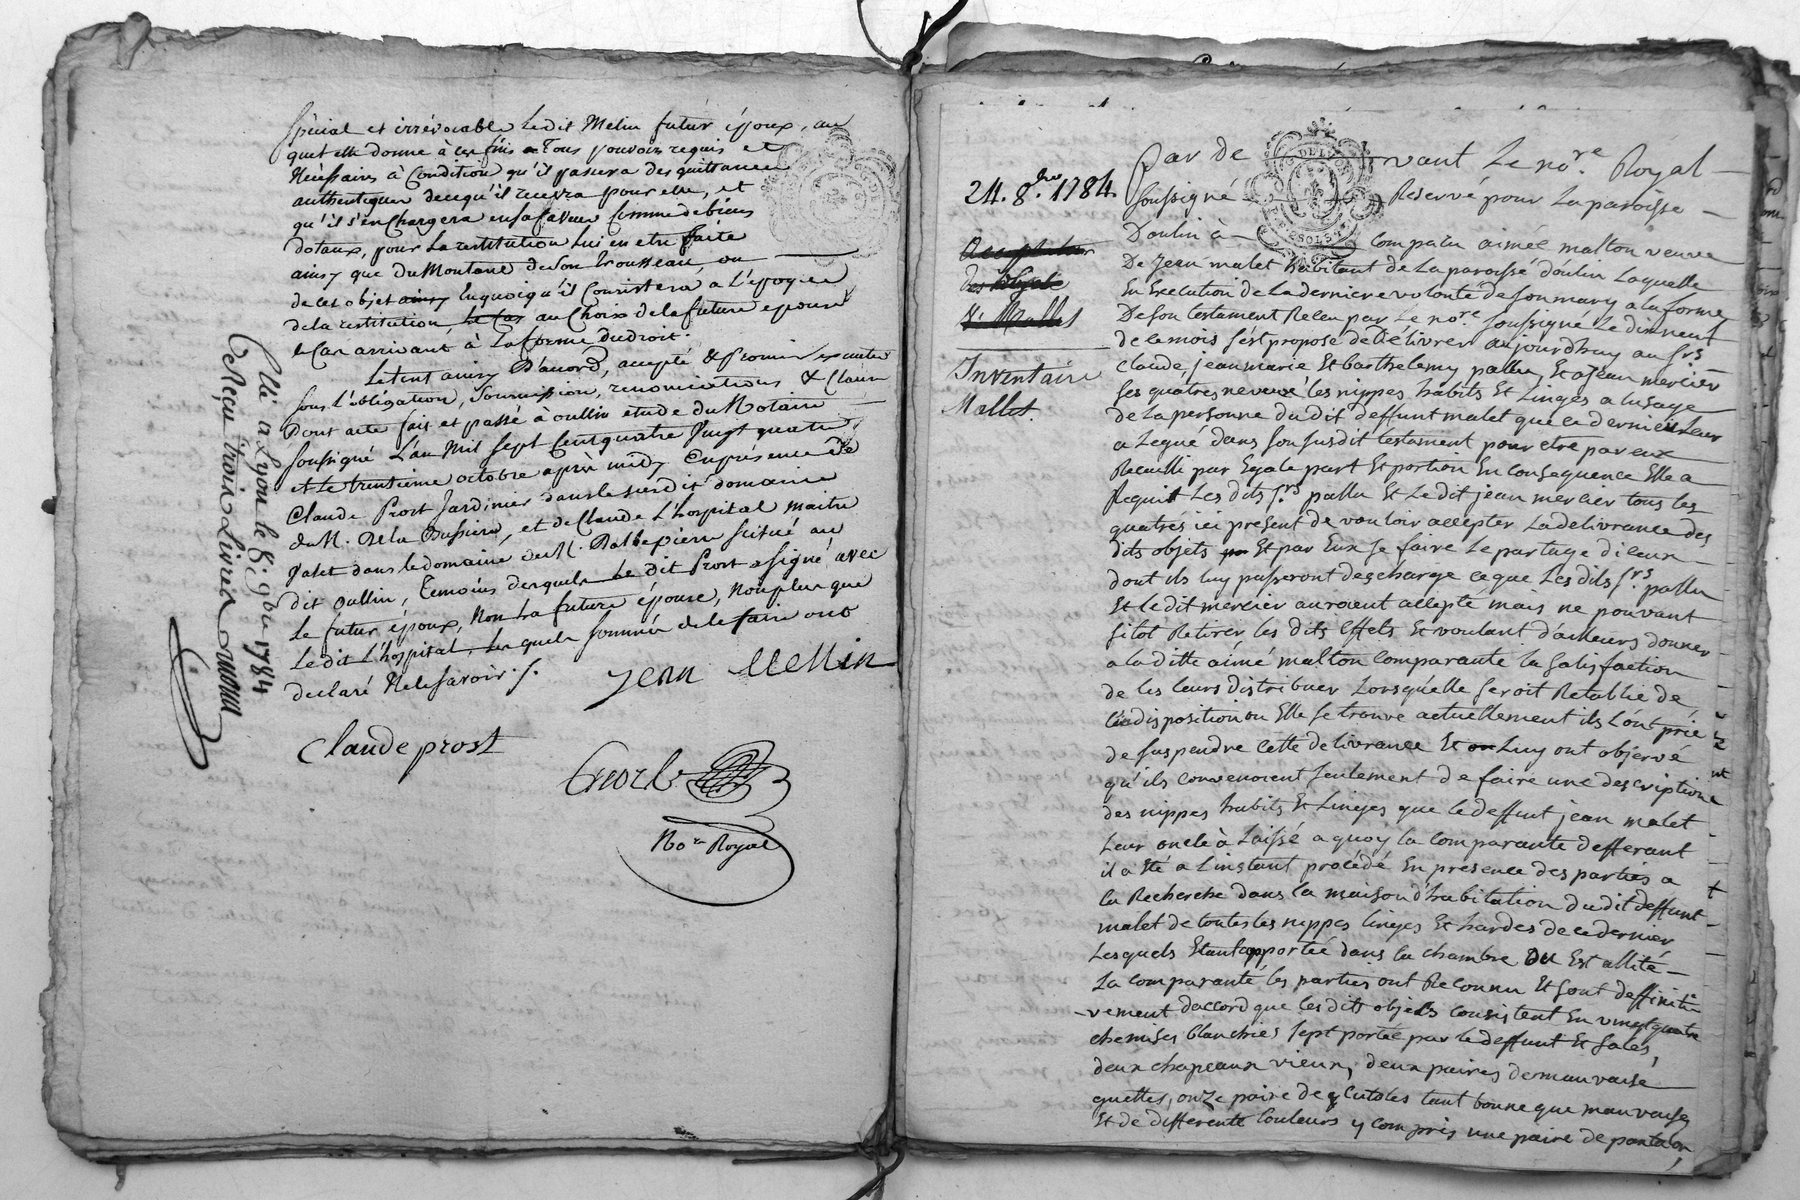 special et irrévocable Ledit Melin futur époux, au
quel elle donne à ces fins Tous pouvoirs requis et
Necessaires à Condition qu'il passera des quittances
authentiques de ce qu'il recevra pour elle, et
qu'il s'en Chargera en sa faveur Comme de biens
dotaux, pour La restitution Lui en etre faite
ainsy que du Montant de son trousseau, ou
de ces objet ainsy En quoi qu'il Consistera à L'époque
de la restitution, Le Cas au Choix de la future epouse
le Cas arrivant à La forme du droit.
Le tout ainsy D'accord, accepté & promis executer
sous L'obligation, Soumission, renonciations & Clauses
Dont acte fait et passé à oullin etude du Notaire
soussigné L'an Mil Sept Cent quatre Vingt quatre
et Le trentieme octobre après midy En présence de
Claude Prost Jardinier dans le susdit domaine
du M. De la Bussiere, et de Claude L'hospital maitre
Valet dans le domaine du M. scitué au
dit oullin, Temoins desquels Le dit Prost a signé avec
Le futur époux, Non La future épouse, Non plus que
Le dit L'hospital, Les quels sommés de le faire ont
declaré Ne le savoir ./.
jean Mellin
Claude prost
No.re Royal
à Lyon le 8. 9bre 1784
Reçu trois Livres
24. 8.bre 1784
Inventaire
Mallet.
Par de vant Le no.re Royal
soussigné Reservé pour La paroisse
Doulin à comparu aimée malton veuve
De jean malet habitant de La paroisse doulin Laquelle
En Execution de La derniere volonté de son mary a la forme
De son testament Receu par Le no.re soussigné Le dix neuf
de ce mois s'est proposé de Delivrer aujourdhuy au srs
Claude, jean marie Et barthelemy pallu, Et a jean mercier
ses quatres neveux les nippes habits Et Linges a lusage
de La personne du dit deffunt malet que ce dernier Leur
a Legué dans son susdit testament pour etre par eux
Recuilli par Egale part Et portion En consequence Elle a
Requit Les dits srs pallu Et Le dit jean mercier tous les
quatres ici present de vouloir accepter La delivrance des
dits objets Et par Eux se faire Le partage diceux
dont ils luy passeront descharge ce que Les dits srs pallu
Et Le dit mercier auroient accepté mais ne pouvant
sitot Retirer les dits effets Et voulant d'ailleurs donner
a la ditte aimé malton comparante la satisfaction
de les leurs distribuer Lorsquelle seroit Retablie de
disposition ou Elle se trouve actuellement ils L'ont prié
de suspendre cette delivrance Et Luy ont observé
qu'ils convenoient seulement de faire une description
des nippes habits Et Linges que le deffunt jean malet
Leur oncle à Laissé a quoy la comparante defferant
il a Eté a Linstant procédé En presence des parties a
la Recherche dans la maison d'habitation du dit deffunt
malet de toutes les nippes linges Et hardes de ce dernier
Lesquels Etant apportée dans la chambre ou Est allité
La comparante les parties ont Reconnu Et sont deffiniti
vement daccord que les dits objets consistent En vingt quatre
chemises blanchies sept portée par le deffunt Et sales,
deux chapeaux vieux, deux paires de mauvaise
guettes, onze paire de culotes tant bonne que mauvaise
Et de differente Couleurs y compris une paire de pantalon,